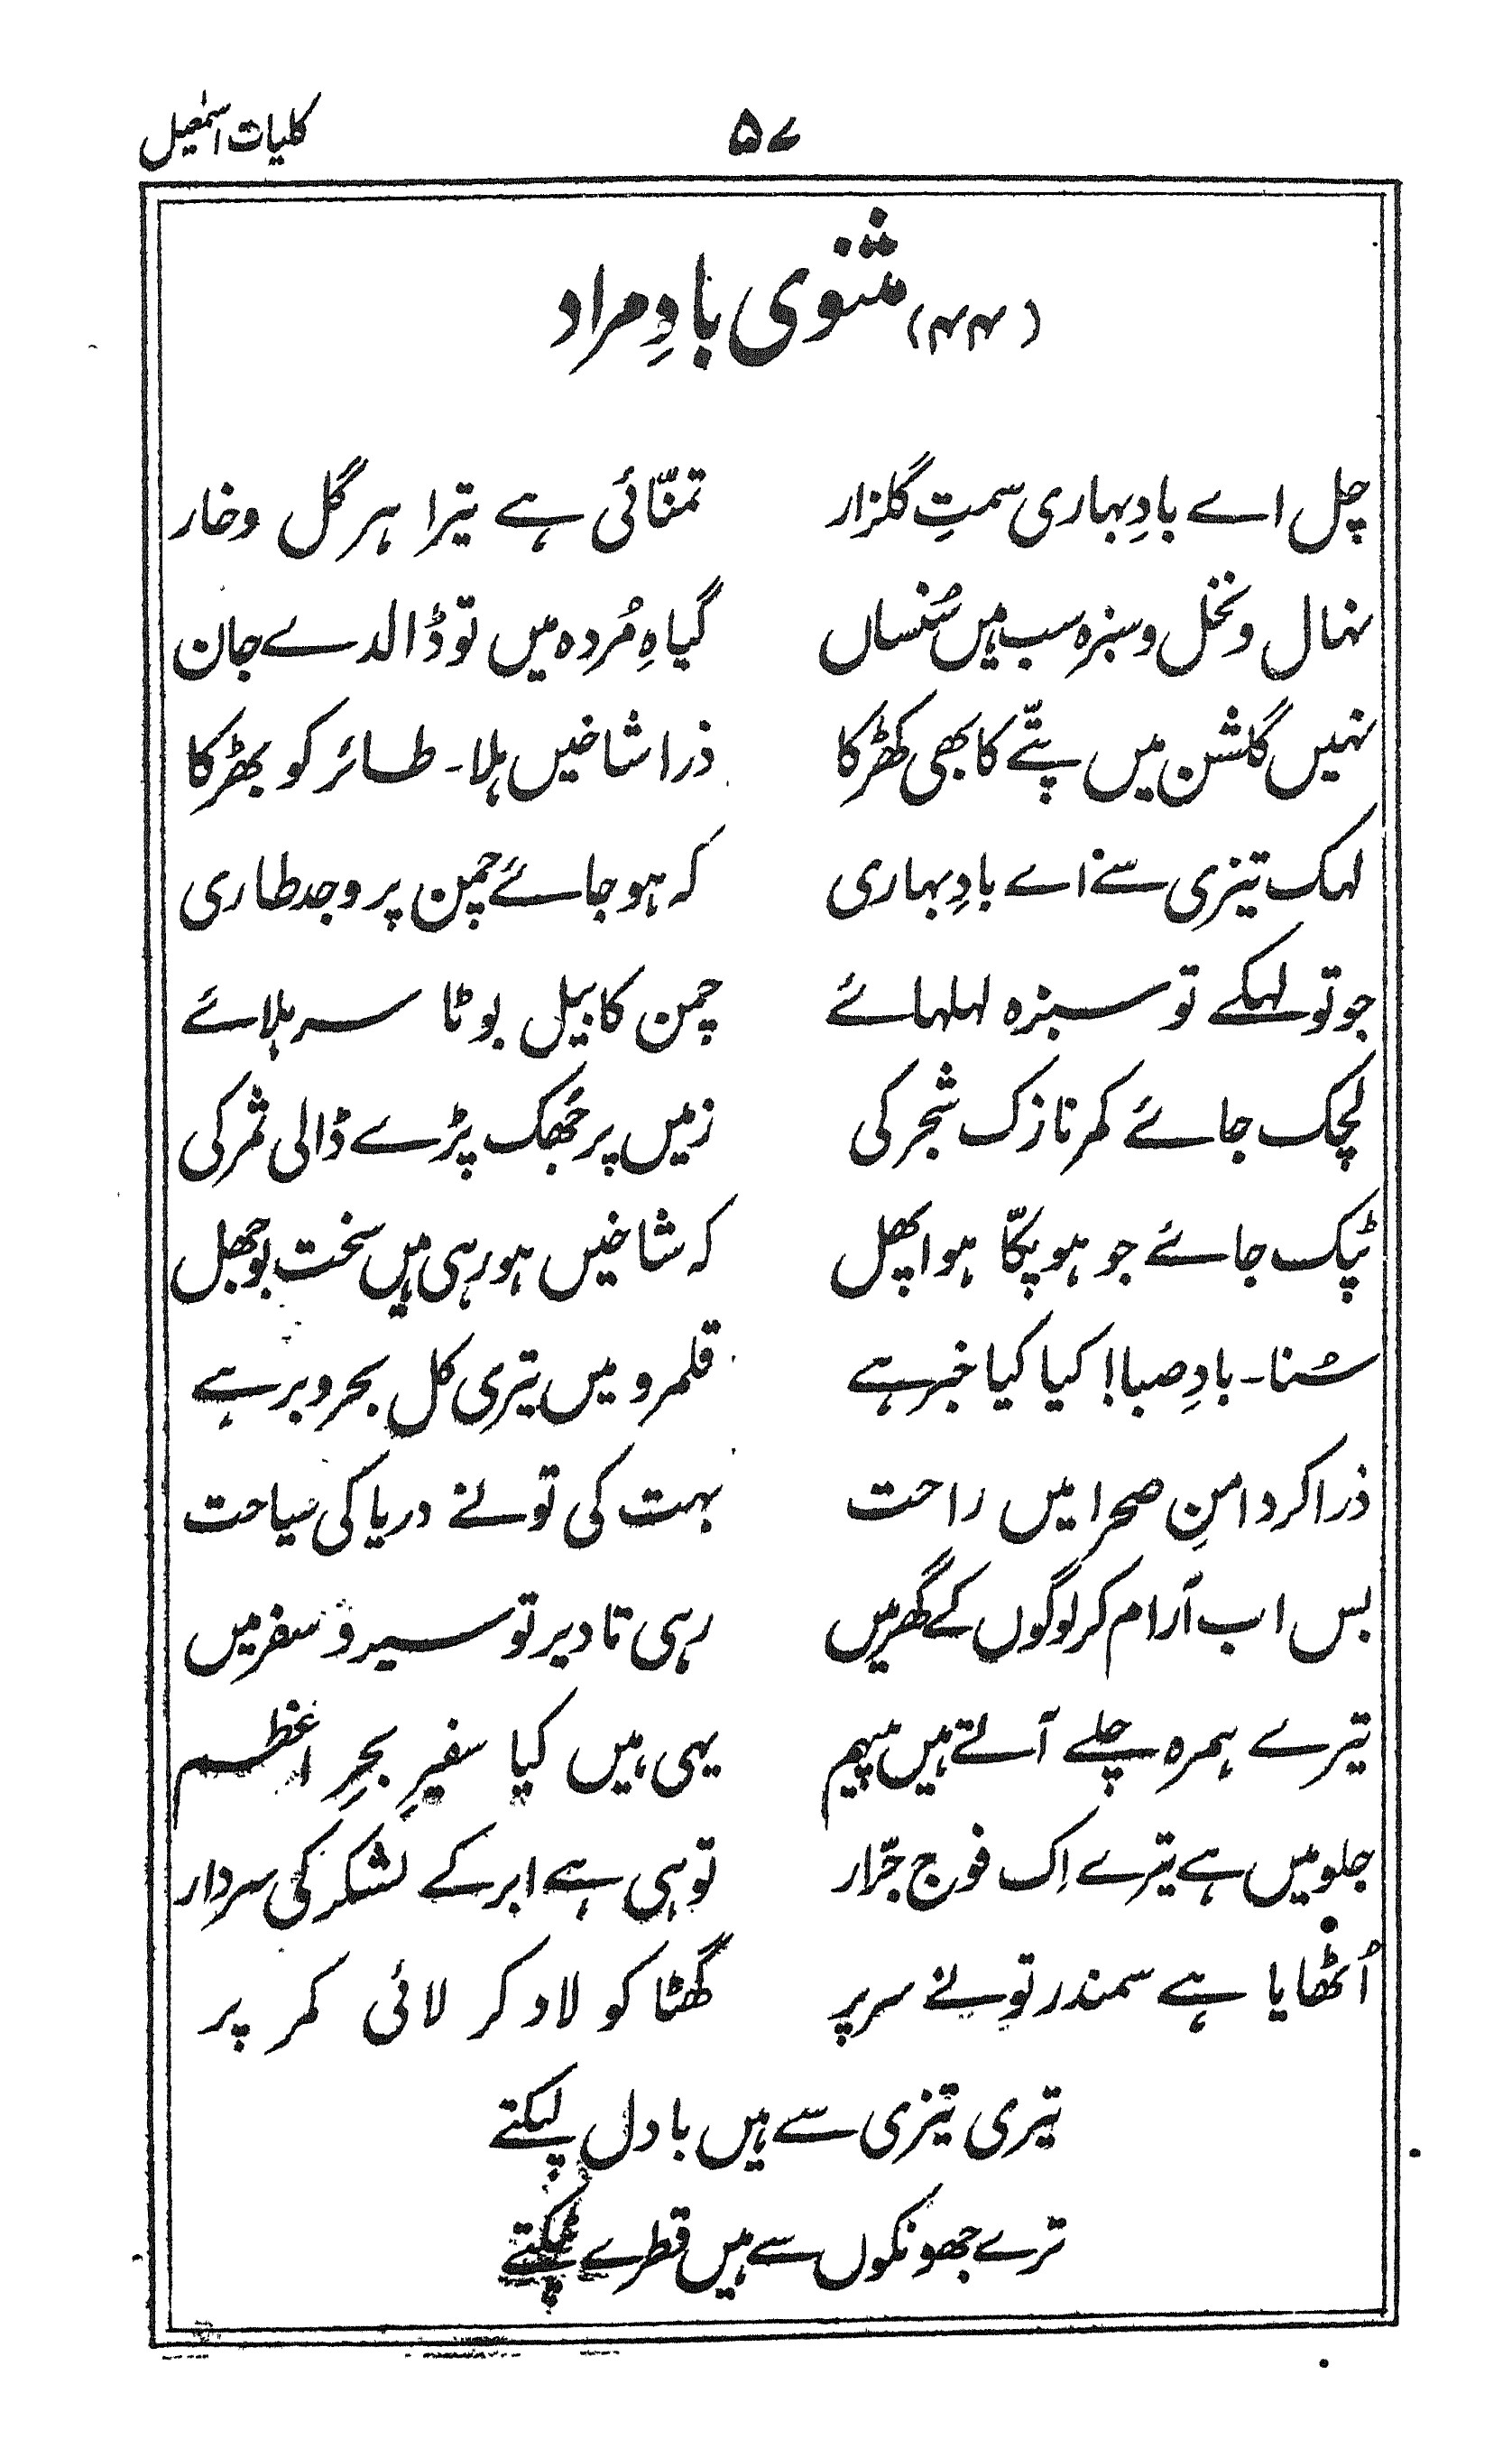 کلیات اسمٰعیل ۵۷
(۴۴) مثنوی بادِ مراد
چل اے بادِ بہاری سمتِ گلزار تمنّائی ہے تیرا ہر گل و خار
نہال و نخل و سبزہ سب ہیں سُنساں گیاہِ مُردہ میں تو ڈالدے جان
نہیں گلشن میں پتّے کا بھی کھڑکا ذرا شاخیں ہلا۔ طائر کو بھڑکا
لہک تیزی سے اے بادِ بہاری کہ ہو جائے چمن پر وجد طاری
جو تو لہکے تو سبزہ لہلہائے چمن کا بیل بوٹا سر ہلائے
لچک جائے کمر نازک شجر کی زمیں پر جُھک پڑے ڈالی ثمر کی
ٹپک جائے جو ہو پکّا ہوا پھل کہ شاخیں ہو رہی ہیں سخت بوجھل
سُنا۔ بادِ صبا! کیا کیا خبر ہے قلمرو میں تیری کل بحر و بر ہے
ذرا کر دامنِ صحرا میں راحت بہت کی تو نے دریا کی سیاحت
بس اب آرام کر لوگوں کے گھر میں رہی تا دیر تو سیر و سفر میں
تیرے ہمرہ چلے آتے ہیں پیہم یہی ہیں کیا سفیرِ بحرِ اعظم
جلو میں ہے تیرے اِک فوج جرّار تو ہی ہے ابر کے لشکر کی سردار
اُٹھایا ہے سمندر تو نے سر پر گھٹا کو لاد کر لائی کمر پر
تیری تیزی سے ہیں بادل لپکتے
ترے جھونکوں سے ہیں قطرے ٹپکتے